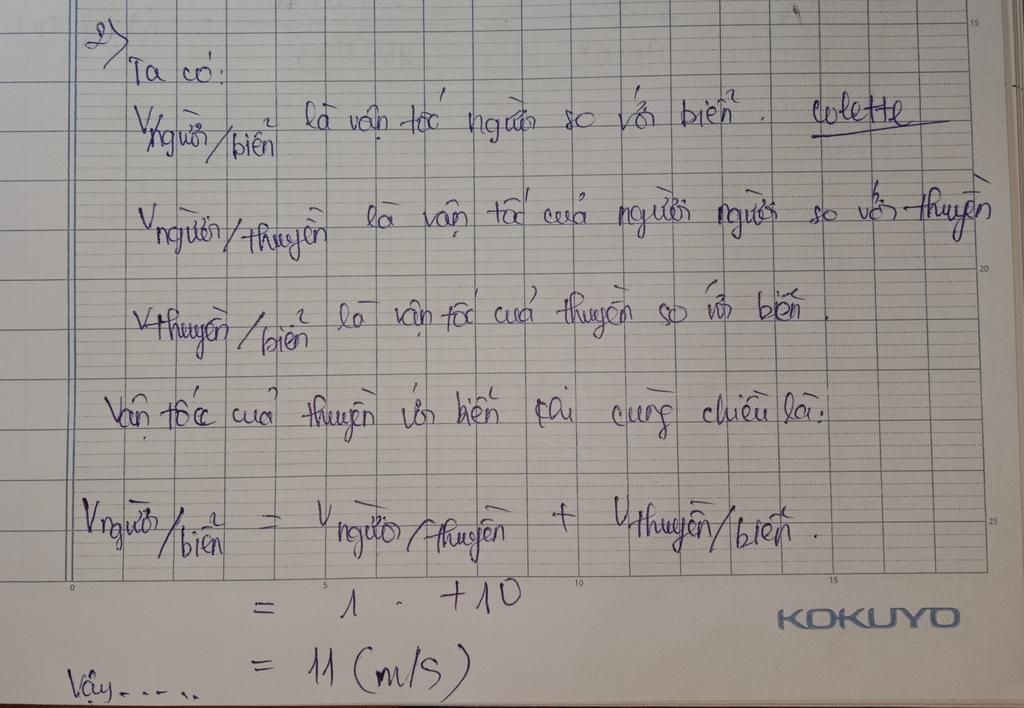 15
2)
Ta có:
Vngười/biển là vận tốc người so với biển. Colette
Vngười/thuyền là vận tốc cuả người người so với thuyền
20
Vthuyền/biển là vận tốc cuả thuyền so với biển.
Vận tốc cuả thuyền với biển khi cùng chiều là:
Vngười/biển = Vngười/thuyền + Vthuyền/biển.
25
0 5 10 15
= 1 . +10
KOKUYO
= 11 (m/s)
Vậy......